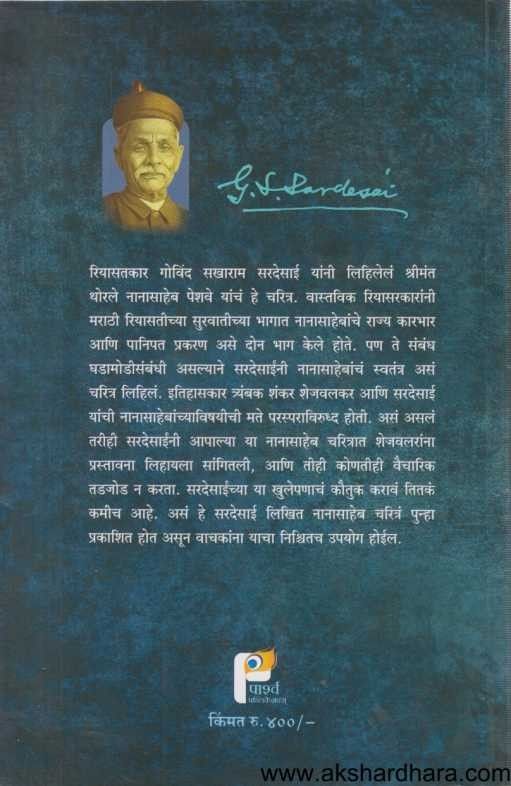 G. S. Sardesai
रियासतकार गोविंद सखाराम सरदेसाई यांनी लिहिलेलं श्रीमंत
थोरले नानासाहेब पेशवे यांचं हे चरित्र. वास्तविक रियासरकारांनी
मराठी रियासतीच्या सुरवातीच्या भागात नानासाहेबांचे राज्य कारभार
आणि पानिपत प्रकरण असे दोन भाग केले होते. पण ते संबंध
घडामोडीसंबंधी असल्याने सरदेसाईंनी नानासाहेबांचं स्वतंत्र असं
चरित्र लिहिलं. इतिहासकार त्र्यंबक शंकर शेजवलकर आणि सरदेसाई
यांची नानासाहेबांच्याविषयीची मते परस्पराविरुध्द होती. असं असलं
तरीही सरदेसाईंनी आपाल्या या नानासाहेब चरित्रात शेजवलरांना
प्रस्तावना लिहायला सांगितली, आणि तीही कोणतीही वैचारिक
तडजोड न करता. सरदेसाईंच्या या खुलेपणाचं कौतुक करावं तितकं
कमीच आहे. असं हे सरदेसाई लिखित नानासाहेब चरित्रं पुन्हा
प्रकाशित होत असून वाचकांना याचा निश्चितच उपयोग होईल.
पार्श्व
पब्लिकेशन्स
किंमत रु. ४००/–
www.akshardhara.com